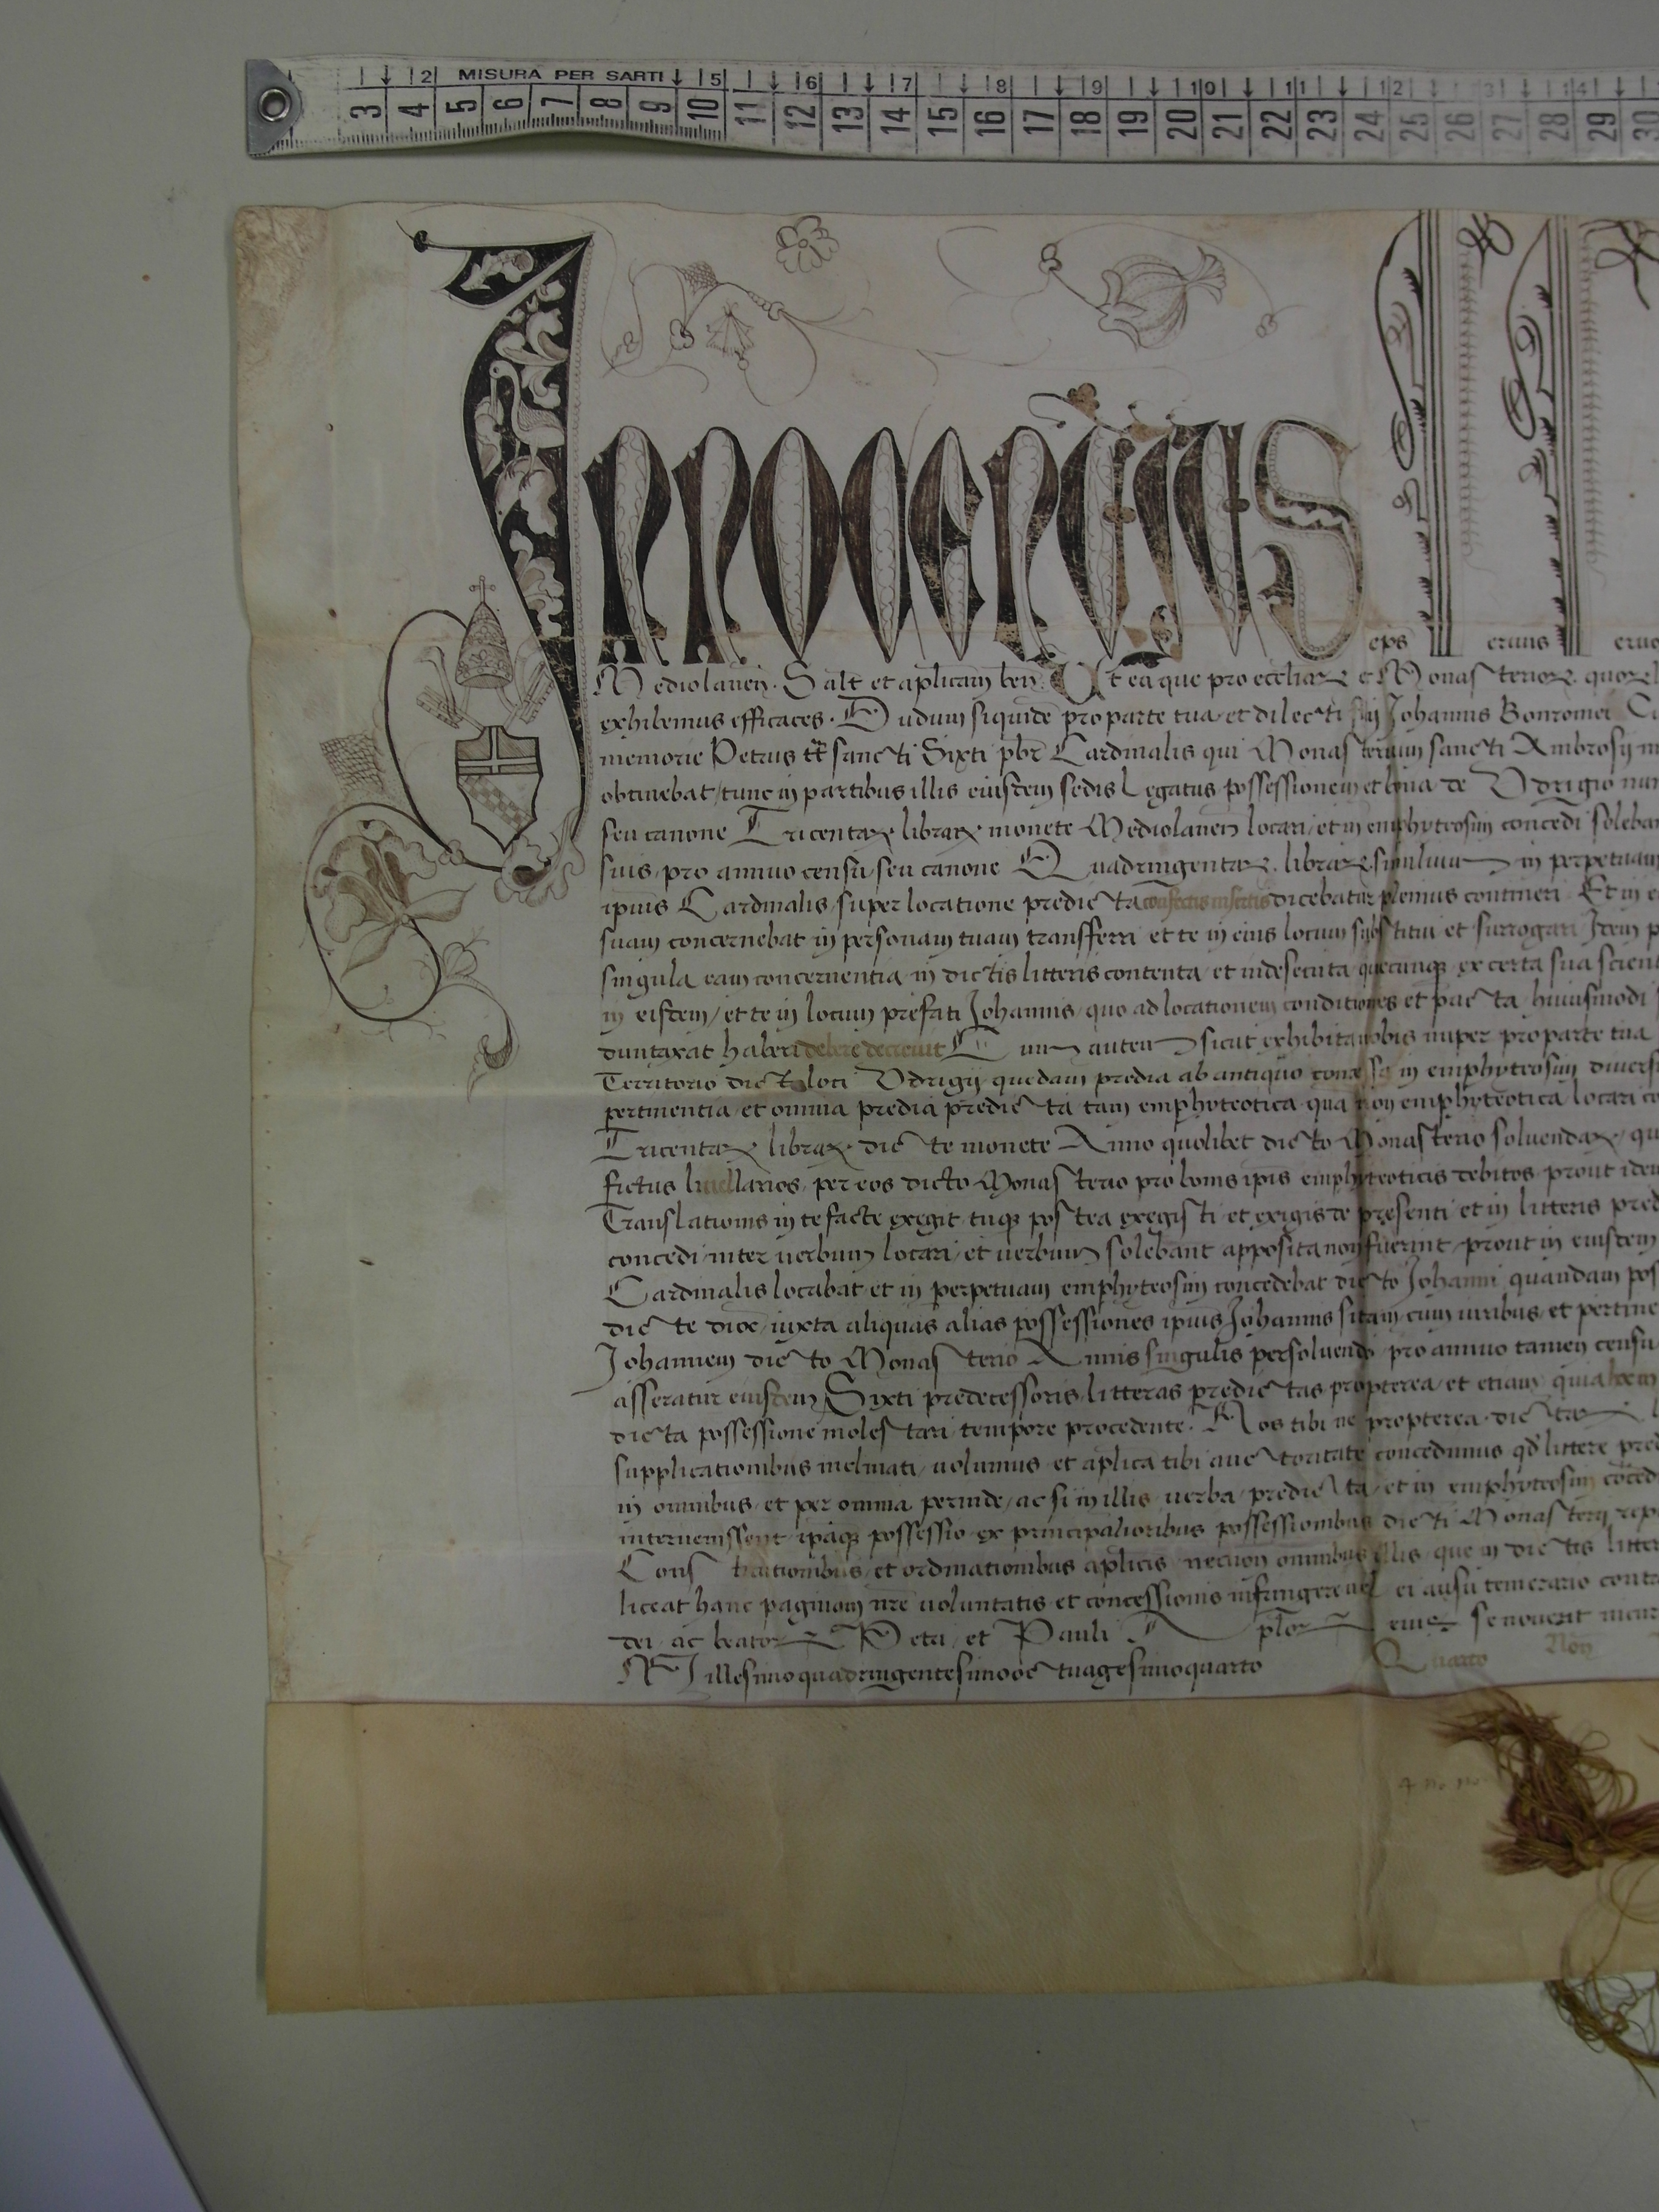 2 MISURA PER SARTI 5 6 7 8 9 10 11 12 13 14
3 4 5 6 7 8 9 10 11 12 13 14 15 16 17 18 19 20 21 22 23 24 25 26 27 28 29 30
Innocentius
eps seruus seruo
Mediolanen. Salt et aplicam ben. Ut ea que pro eccliaꝝ et Monasterioꝝ quoꝝl
exhibemus efficaces. Dudum siquidē pro parte tua et dilecti filij Johannis Bonromei
memorie Petrus tt sancti Sixti pbr Cardinalis qui Monasterium sancti Ambrosij m
obtinebat, tunc in partibus illis eiusdem sedis Legatus possessionem et bona de Vdrigio nun
seu canone Tricentaꝝ libraꝝ monete Mediolanen locari, et in emphyteosim concedi soleba
suis, pro annuo censu, seu canone Quadringentaꝝ libraꝝ similium in perpetuam
ipius Cardinalis, super locatione predicta confectis insertis dicebatur plenius contineri. Et in e
suam concernebat in personam tuam transferri et te in eius locum substitui et surrogari Idem p
singula eam concernentia in dictis litteris contenta, et inde secuta, quecunqꝫ ex certa sua scient
in eisdem, et te in locum prefati Johannis, quo ad locationem conditiones et pacta, huiusmodi
duntaxat haberi debere decreuit Cum autem sicut exhibita nobis nuper pro parte tua
Territorio dicti loci Vdrigij quedam predia ab antiquo concessa in emphyteosim diuersi
pertinentia, et omnia predia predicta tam emphyteotica qua non emphyteotica locari co
Tricentaꝝ libraꝝ dicte monete Anno quolibet dicto Monasterio soluendaꝝ, qu
fictus liuellarios, per eos dicto Monasterio pro bonis ipis emphyteoticis debitos, prout idem
Translationis in te facte exegit, tuqꝫ postea exegisti et exigis de presenti et in litteris pred
concedi, inter uerbum locari, et uerbum solebant apposita non fuerint, prout in eisdem
Cardinalis locabat et in perpetuam emphyteosim concedebat dicto Johanni quandam pos
dicte dioc, iuxta aliquas alias possessiones ipius Johannis sitam, cum iuribus, et pertine
Johannem dicto Monasterio Annis singulis persoluendo pro annuo tamen censu
asseratur eiusdem Sixti predecessoris litteras predictas propterea, et etiam quia
dicta possessione molestari, tempore procedente. Nos tibi ne propterea dictaꝝ
supplicationibus inclinati, uolumus et aplica tibi auctoritate concedimus qd littere pred
in omnibus, et per omnia perinde, ac si in illis uerba predicta, et in emphyteosim cōced
interuenissent ipaqꝫ possessio ex principalioribus possessionibus dicti Monasterij rep
Constitutionibus, et ordinationibus aplicis necnon omnibus illis, que in dictis litter
liceat hanc paginam nrē uoluntatis et concessionis infringere uel ei ausu temerario contr
dei, ac beatoꝝ Petri, et Pauli Aploꝝ eius se nouerit incur
Millesimoquadringentesimooctuagesimoquarto Quarto Non